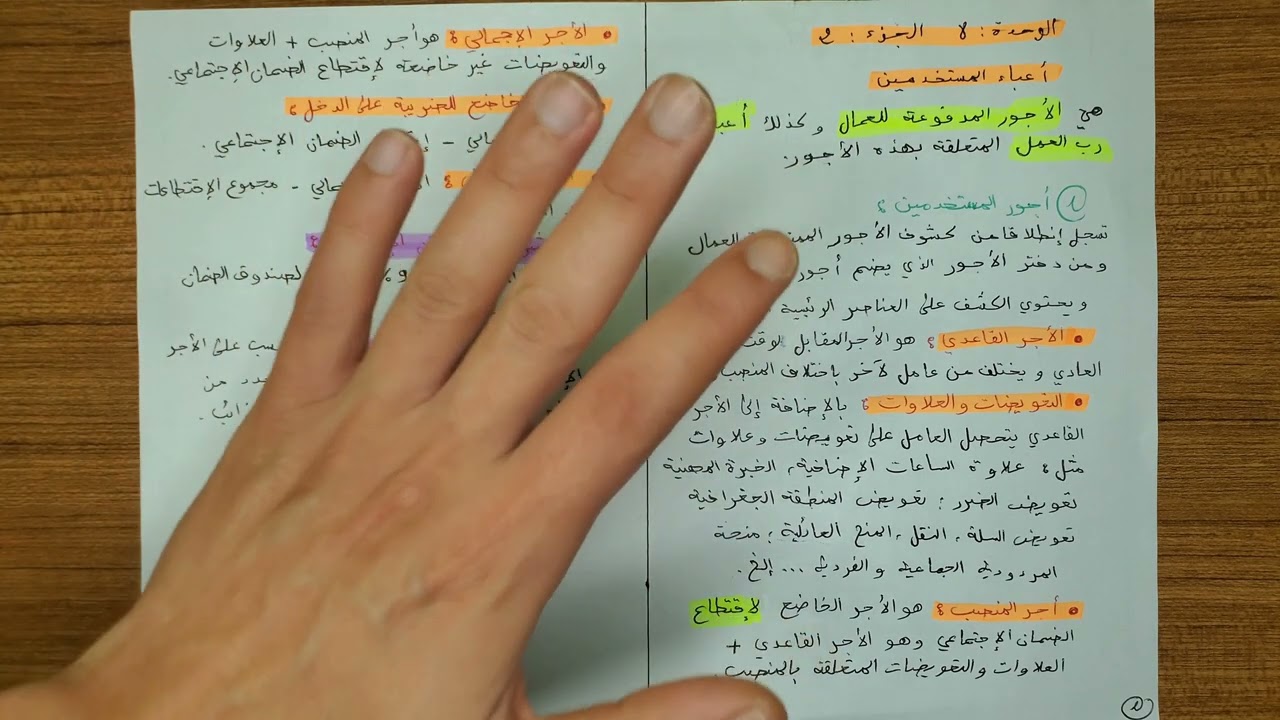 الوحدة: 8 الجزء: 2
أعباء المستخدمين
هي الأجور المدفوعة للعمال وكذلك
رب العمل المتعلقة بهذه الأجور.
1 أجور المستخدمين:
تسجل إنطلاقا من كشوف الأجور العمال
ومن دفتر الأجور الذي يضم أجور
ويحتوي الكشف على العناصر الرئيسية
• الأجر القاعدي: هو الأجر المقابل لوقت
العادي ويختلف من عامل لآخر باختلاف المنصب
• التعويضات والعلاوات: بالإضافة إلى الأجر
القاعدي يتحصل العامل على تعويضات وعلاوات
مثل: علاوة الساعات الإضافية، الخبرة المهنية
تعويض الضرر، تعويض المنطقة الجغرافية
تعويض السلة، النقل، المنح العائلية، منحة
المردودية الجماعية والفردية ... إلخ.
• أجر المنصب: هو الأجر الخاضع لإقتطاع
الضمان الإجتماعي وهو الأجر القاعدي +
العلاوات والتعويضات المتعلقة بالمنصب.
1
• الأجر الإجمالي: هو أجر المنصب + العلاوات
والتعويضات غير خاضعة لإقتطاع الضمان الإجتماعي.
خاضع للضريبة على الدخل:
الضمان الإجتماعي.
- مجموع الإقتطاعات
لصندوق الضمان
على الأجر
من